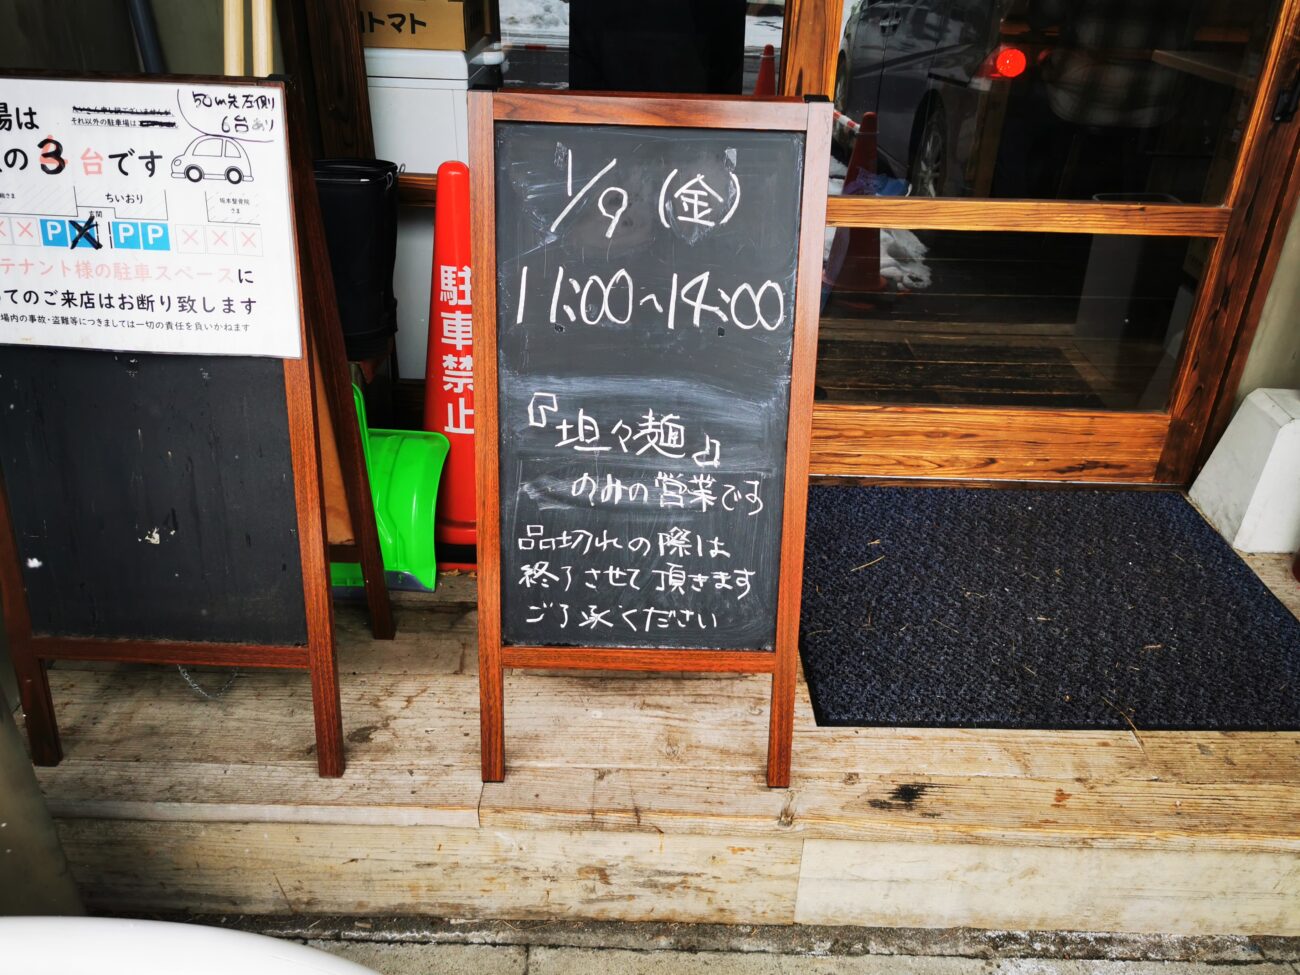 トマト
場は
それ以外の駐車場は
50m先左側
6台あり
の3台です
ちいおり
玄関
さま
P
P P
テナント様の駐車スペースに
てのご来店はお断り致します
場内の事故・盗難等につきましては一切の責任を負いかねます
駐車禁止
1/9(金)
11:00~14:00
『坦々麺』
のみの営業です
品切れの際は
終了させて頂きます
ご了承ください